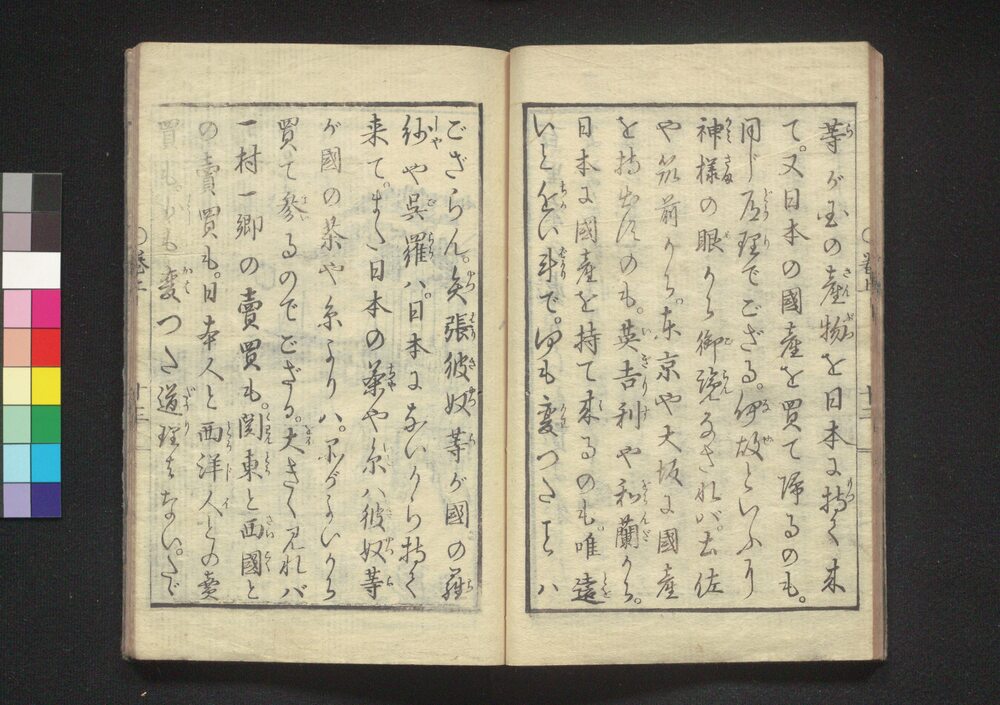 等が国の産物を日本に持て来
て。又日本の國産を買て帰るのも。
同じ道理でござる。何故といふに
神様の眼から御覧なされバ。土佐
や筑前から。東京や大坂に國産
を持出すのも。英吉利や和蘭から。
日本に國産を持て来るのも。唯遠
いと近い斗で。何も変つたことハ
ござらん。矢張彼奴等が國の羅
紗や呉羅ハ。日本にないから持て
来て。また日本の茶や糸ハ彼奴等
が國の茶や糸よりハ。品がよいから
買て参るのでござる。大きく見れバ
一村一郷の賣買も。関東と西國と
の賣買も。日本人と西洋人との賣
買も。
変つた道理はない。